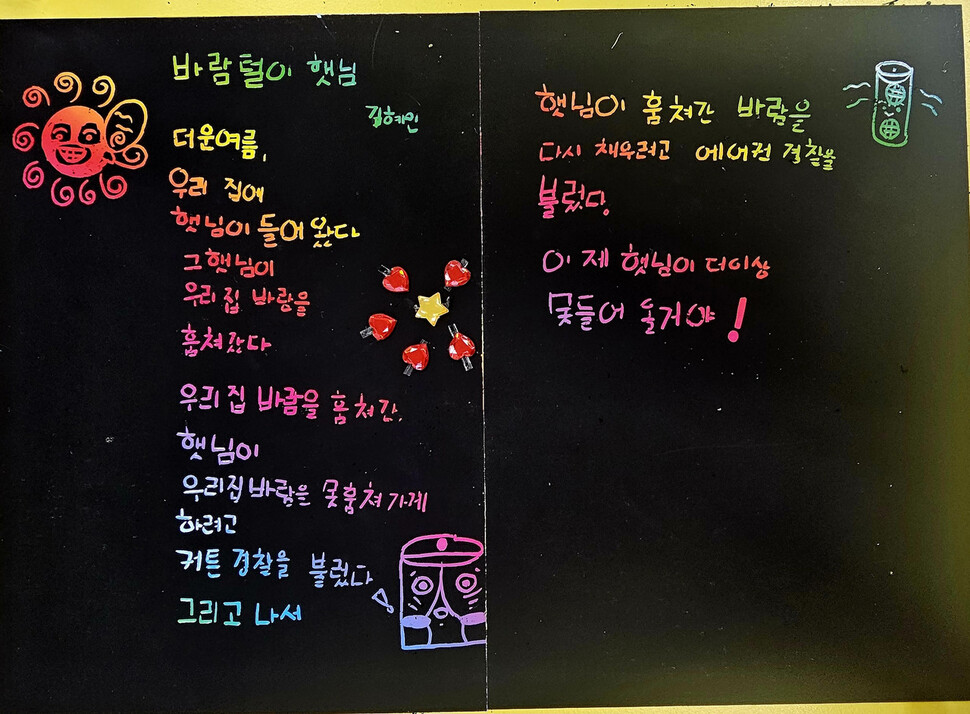 바람털이 햇님
김혜인
더운여름,
우리 집에
햇님이 들어 왔다
그햇님이
우리집 바람을
훔쳐갔다
우리집 바람을 훔쳐간,
햇님이
우리집 바람을 못훔쳐가게
하려고
커튼 경찰을 불렀다
그리고 나서
햇님이 훔쳐간 바람을
다시 채우려고 에어컨 경찰을
불렀다.
이제 햇님이 더이상
못들어 올거야!